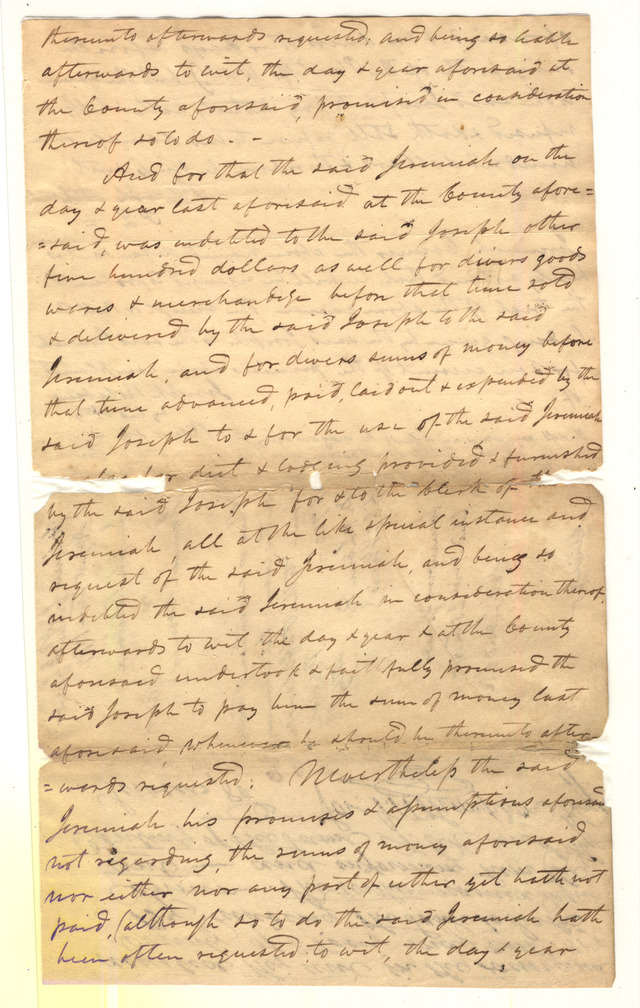 thereunto afterwards requested; and being so liable
afterwards to wit, the day & year aforesaid at
the County aforesaid, promised in consideration
thereof so to do. -
And for that the said Jeremiah on the
day & year last aforesaid at the County afore=
=said, was indebted to the said Joseph other
five hundred dollars as well for divers goods
wares & merchandize before that time sold
& delivered by the said Joseph to the said
Jeremiah, and for divers sums of money before
that time advanced, paid, laid out & expended by the
said Joseph to & for the use of the said Jeremiah
for diet & lodging provided & furnished
by the said Joseph for & to the clerk of
Jeremiah, all at the like special instance and
request of the said Jeremiah, and being so
indebted the said Jeremiah in consideration thereof,
afterwards to wit, the day & year & at the County
aforesaid undertook & faithfully promised the
said Joseph to pay him the sum of money last
aforesaid, whenever he should be thereunto after
=wards requested: Nevertheless the said
Jeremiah his promises & assumptions aforesaid
not regarding, the sums of money aforesaid
nor either nor any part of either yet hath not
paid, (although so to do the said Jeremiah hath
been often requested to wit, the day & year